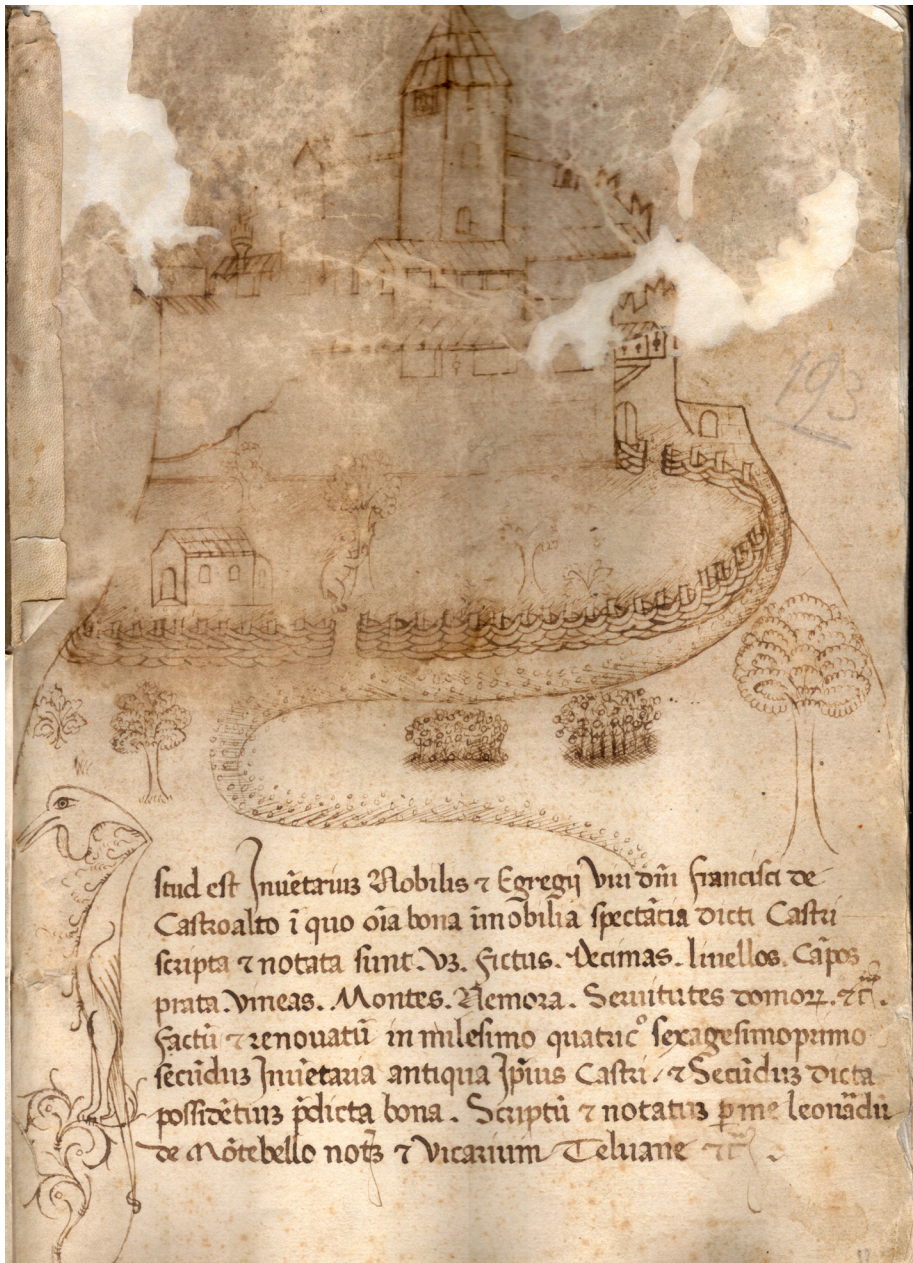 193
Istud est Inuẽtariuꝫ Nobilis ⁊ Egregij Viri dñi francisci de
Castroalto ĩ quo oĩa bona ĩmobilia spectãcia dicti Castri
scripta ⁊ notata sunt. Vꝫ. fictus. Decimas. liuellos. Cãpos
prata. Vineas. Montes. Nemora. Seruitutes domoꝝ. ⁊c̃.
Factũ ⁊ renouatũ in milesimo quatricº sexagesimoprimo
secũduꝫ Inuẽtaria antiqua Ip̃ius Castri / ⁊ Secũduꝫ dicta
possidẽtiuꝫ p̃dicta bona. Scriptũ ⁊ notatuꝫ ꝑ me leonãdũ
de Mõtebello notꝫ ⁊ Vicarium Teluane ⁊c̃.